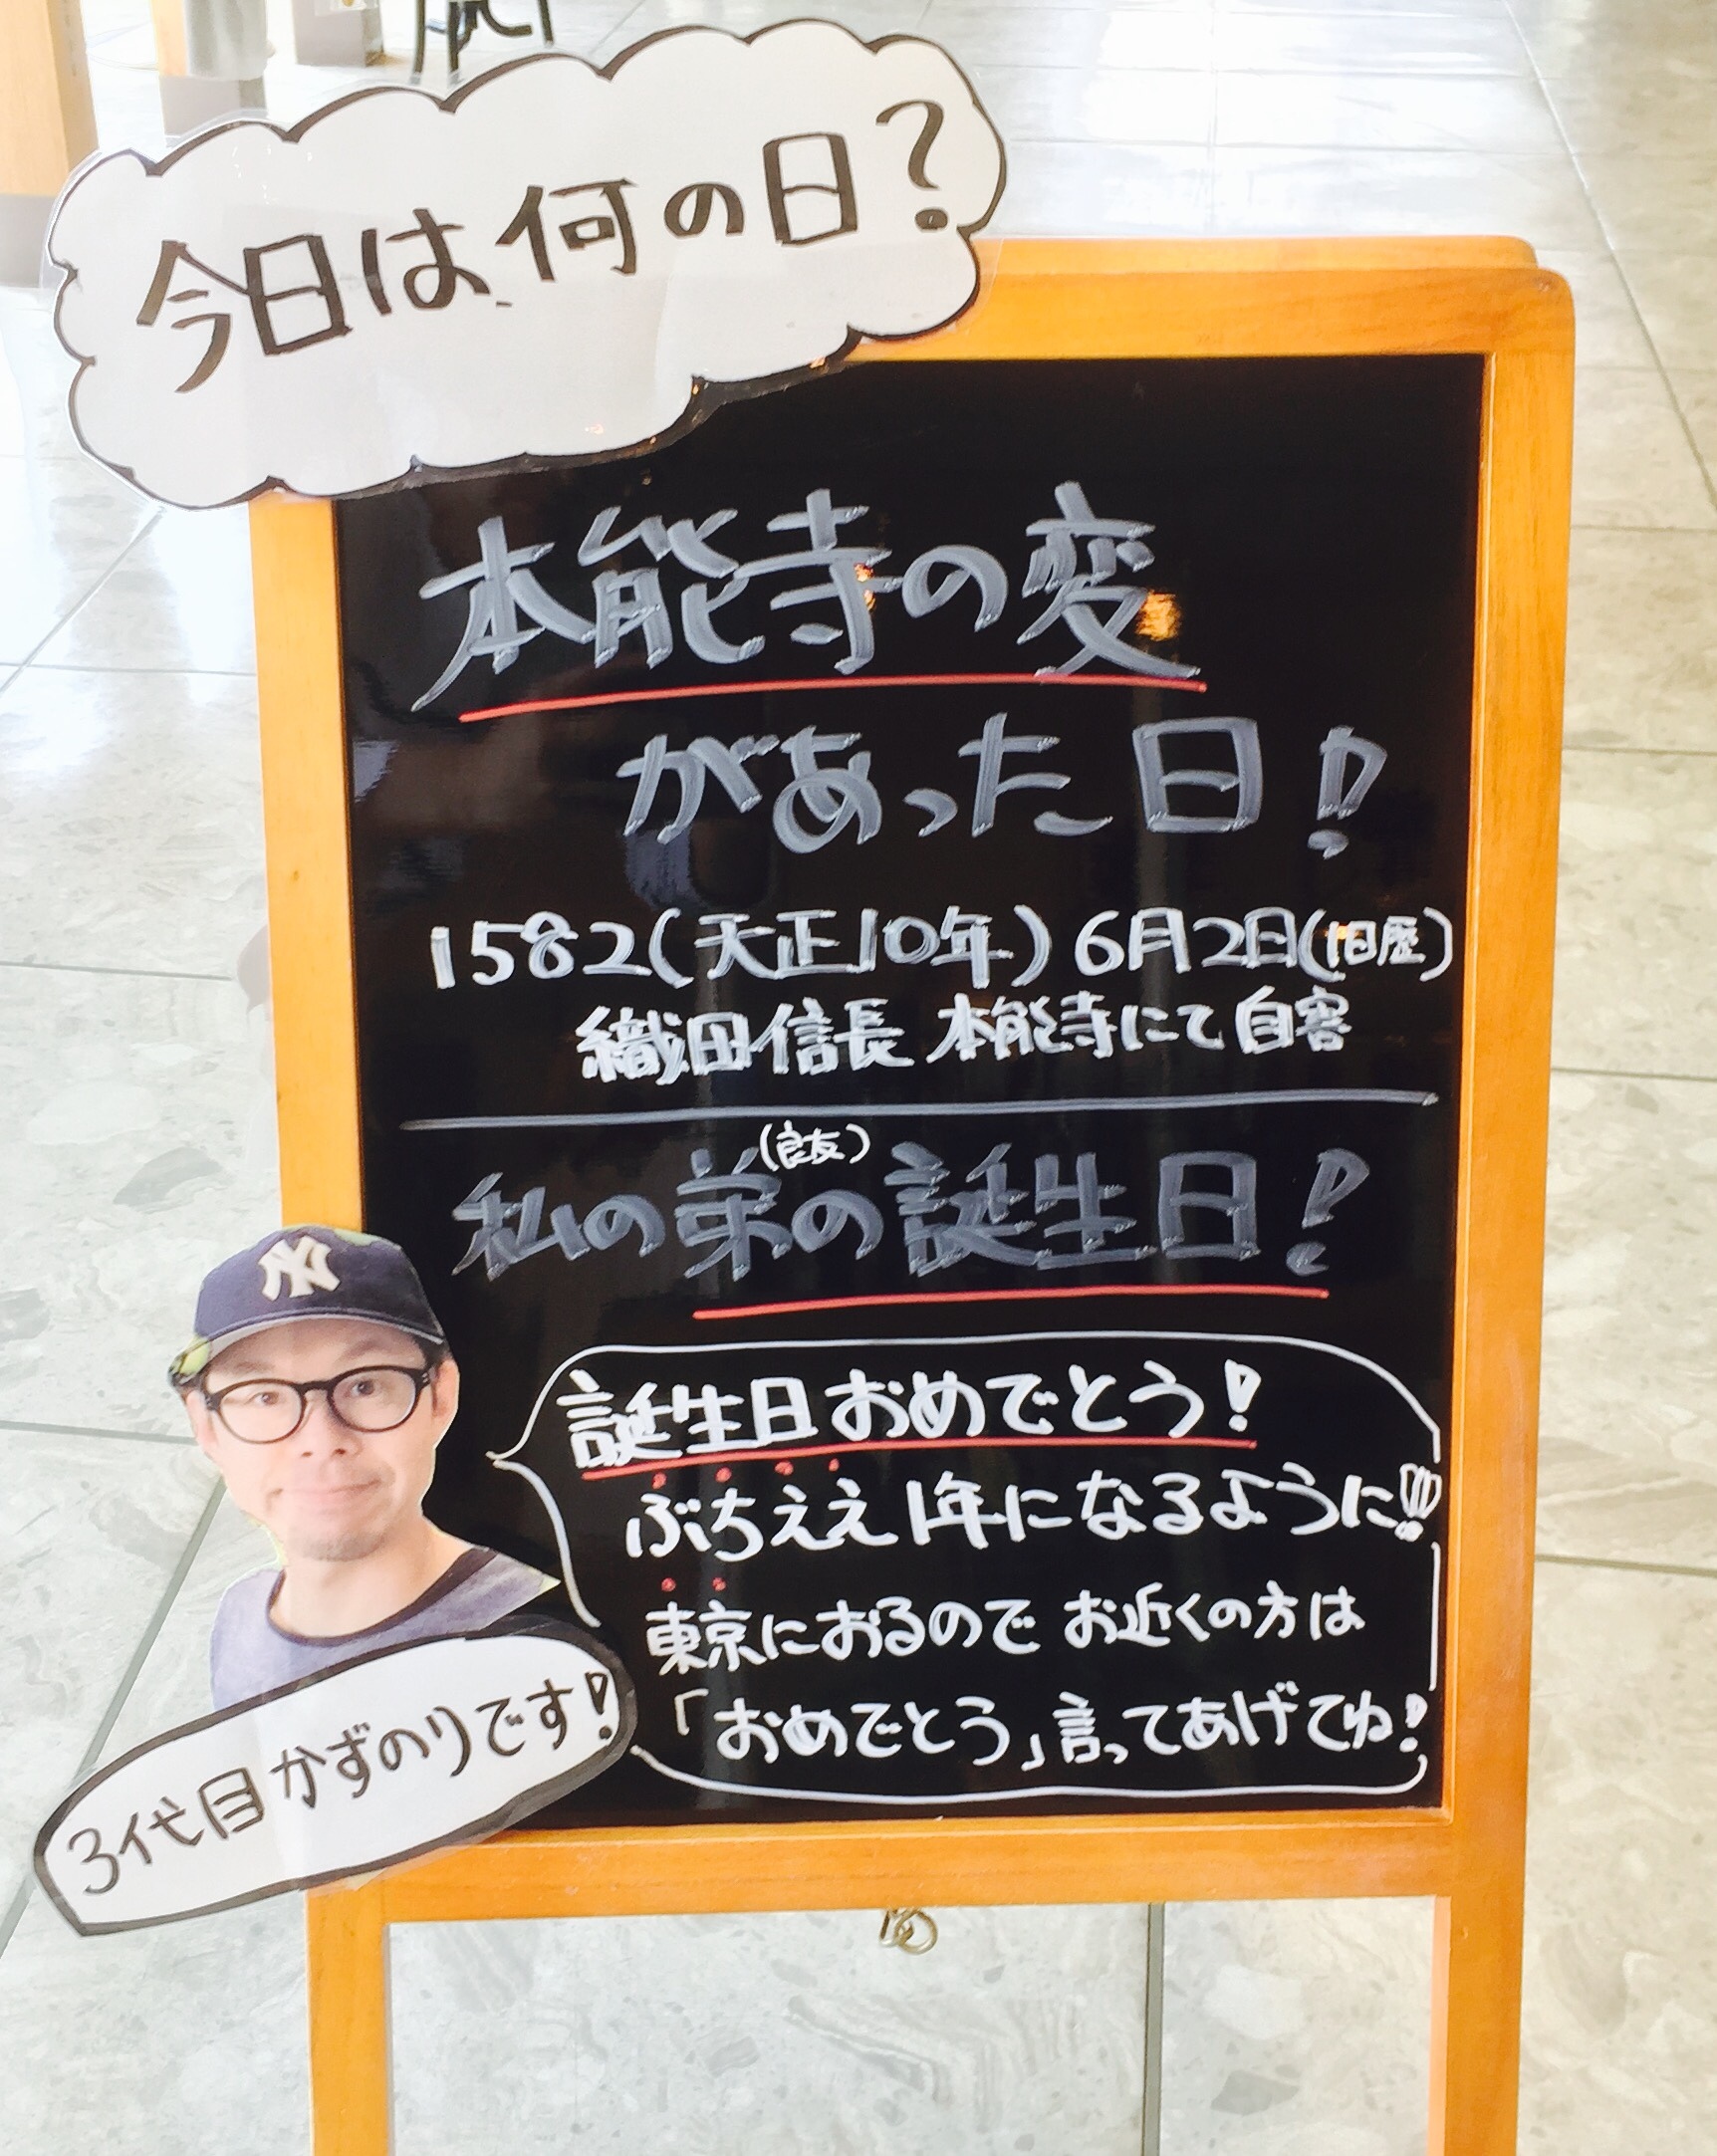 今日は何の日?
本能寺の変
があった日!
1582(天正10年)6月2日(旧歴)
織田信長 本能寺にて自害
(良友)
私の弟の誕生日!
NY
誕生日おめでとう!
ぶちええ1年になるように!!!
東京におるので お近くの方は
「おめでとう」言ってあげてね!
3代目かずのりです!